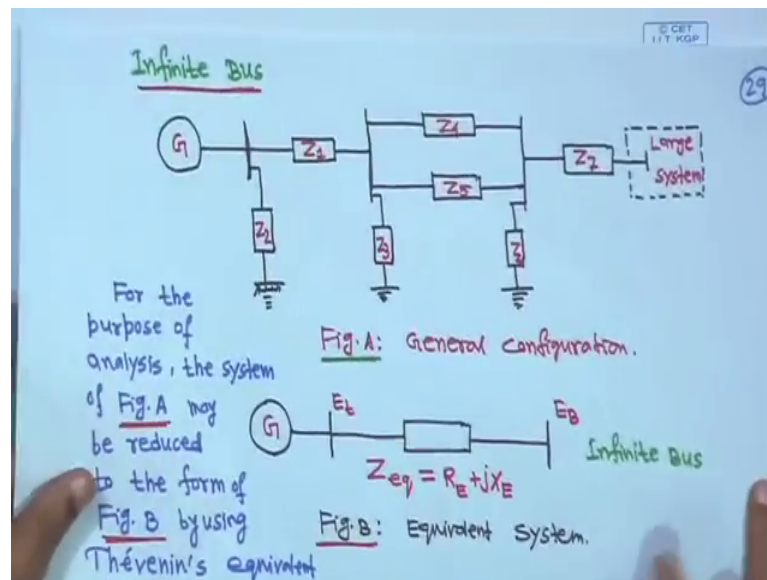 © CET
I.I.T. KGP
Infinite Bus
29
G
Z1
Z4
Z5
Z7
Large
System
Z2
Z3
For the
purpose of
analysis, the system
of Fig. A may
be reduced
to the form of
Fig. B by using
Thévenin's equivalent
Fig. A: General Configuration.
G
Et
EB
Infinite Bus
Zeq = RE + jXE
Fig. B: Equivalent System.